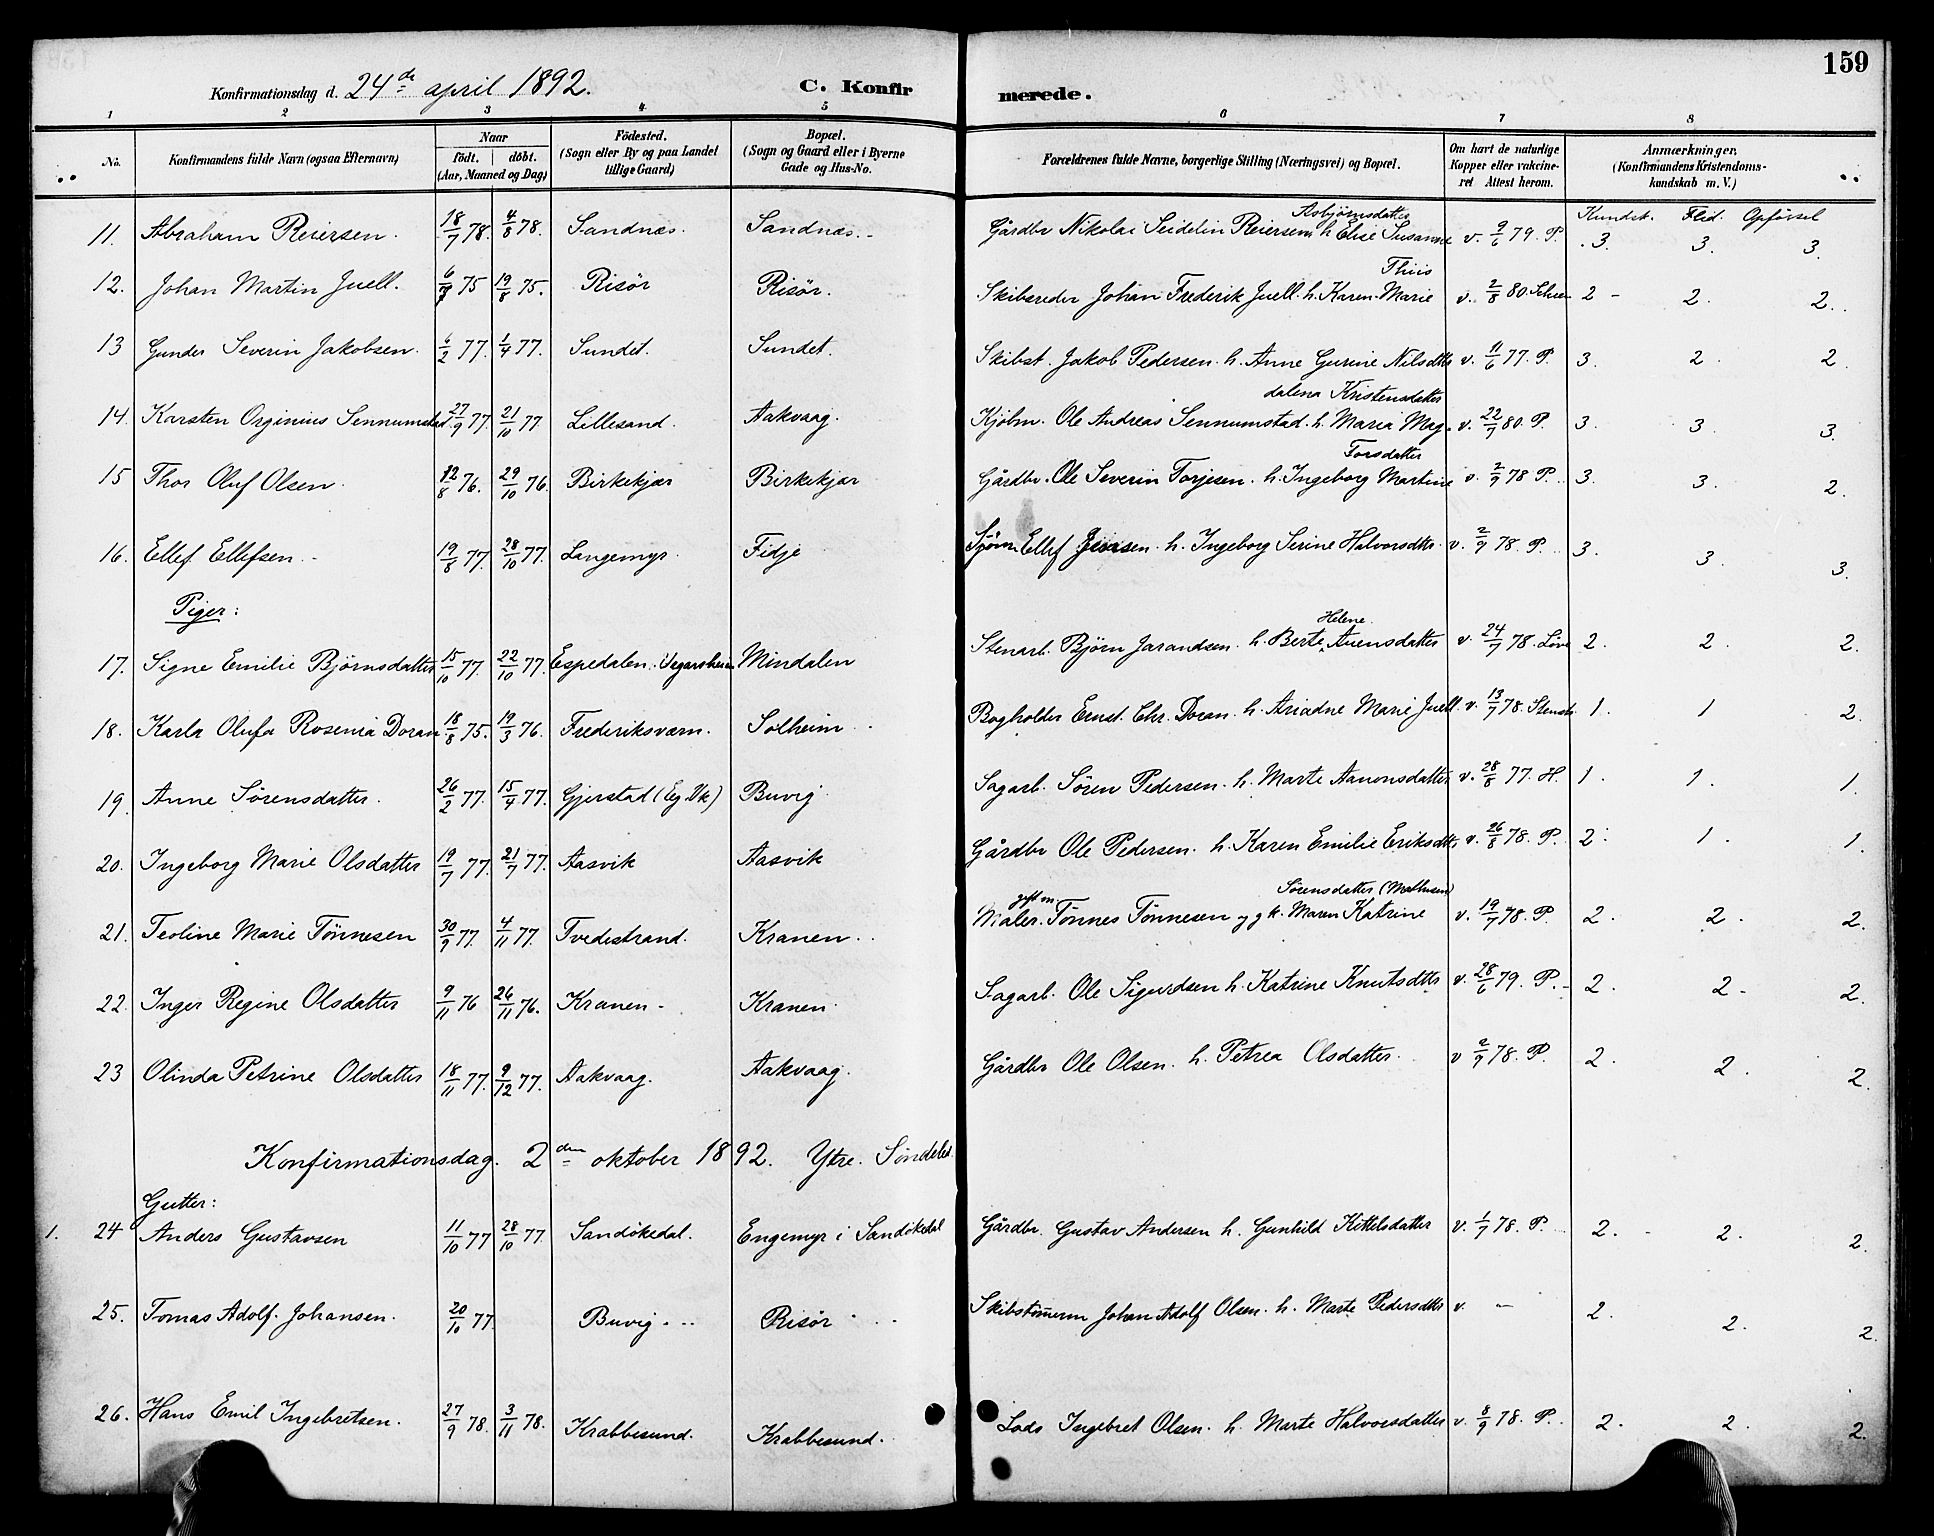 159
Konfirmationsdag d. 24de april 1892. C. Konfirmerede.
1 2 3 4 5 6 7 8
No. Konfirmandens fulde Navn (ogsaa Efternavn) Naar födt. döbt. (Aar, Maaned og Dag) Födested. (Sogn eller By og paa Landet tillige Gaard) Bopæl. (Sogn og Gaard eller i Byerne Gade og Hus-No. Forældrenes fulde Navne, borgerlige Stilling (Næringsvei) og Bopæl. Om havt de naturlige Kopper eller vakcineret Attest herom. Anmærkninger, (Konfirmandens Kristendomskundskab m. V.)
Kundsk. Flid. Opførsel
11. Abraham Reiersen. 18/7 78. 4/8 78. Sandnæs. Sandnæs. Gårdbr Nikolai Seidelin Reiersen h. Elise Susanne Asbjørnsdatter v. 9/6 79. P. 3. 3. 3.
12. Johan Martin Juell. 6/7 75 19/8 75. Risör Risör. Skibsreder Johan Frederik Juell. h. Karen Marie Thiis v. 2/8 80. 2 2. 2.
13 Gunder Severin Jakobsen. 6/2 77. 1/4 77. Sundet. Sundet. Skibst. Jakob Pedersen. h. Anne Gurine Nilsdtr v. 11/6 77. P. 3. 2. 2.
14. Karsten Orginius Sennumstad. 27/9 77. 21/10 77 Lillesand. Aakvaag. Kjöbm. Ole Andreas Sennumstad. h. Maria Magdalena Kristensdatter v. 22/9 80. P. 3. 3. 3.
15 Thor Oluf Olsen. 12/8 76. 29/10 76. Birkekjær Birkekjær Gårdbr. Ole Severin Torjesen. h. Ingeborg Martine Torsdatter v. 2/9 78 P. 3. 3. 2.
16. Ellef Ellefsen. 19/8 77. 28/10 77. Langemyr. Fidje Ellef h. Ingeborg Serine Halvorsdtr. v. 2/9 78. P. 3. 3. 3.
Piger:
17. Signe Emilie Bjørnsdatter 15/10 77. 22/10 77. Espedalen. Vegarsheien Mindalen Stenarb. Bjørn Jarandsen. h. Berte Helene Auensdatter v. 24/7 78. 2. 2. 2.
18. Karla Olufa Rosenia Doran 18/8 75. 19/3 76. Frederiksværn. Solheim Bogholder Ernst Chr. Doran. h. Ariadne Marie Juell v. 13/7 78. 1. 1 2.
19. Anne Sörensdatter. 26/2 77. 15/4 77. Gjerstad (Eg. Vk) Buvig Sagarb. Sören Pedersen. h. Marte Aanonsdatter v. 28/8 77. H. 1. 1. 1.
20. Ingeborg Marie Olsdatter 19/7 77. 21/7 77. Aasvik Aasvik Gårdbr Ole Pedersen. h. Karen Emilie Eriksdtr. v. 26/8 78. P. 2. 1. 1.
21. Teoline Marie Tönnesen 30/9 77. 4/11 77. Tvedestrand. Kranen. Maler. Tönnes Tönnesen gift m. Maren Katrine Sörensdatter (Mathisen) v. 19/7 78. P. 2. 2. 2.
22. Inger Regine Olsdatter 9/11 76 26/11 76. Kranen Kranen Sagarb. Ole Sigurdsen h. Katrine Knutsdtr v. 28/6 79. P. 2. 2 2.
23 Olinda Petrine Olsdatter 18/11 77. 9/12 77. Aakvaag. Aakvaag. Gårdbr Ole Olsen. h. Petrea Olsdatter. v 2/9 78. P. 2. 2. 2.
Konfirmationsdag. 2den oktober 1892. Ytre. Söndeled.
Gutter:
1. 24 Anders Gustavsen 11/10 77 28/10 77. Sandökedal. Engemyr i Sandökedal Gårdbr. Gustav Andersen h. Gunhild Kittelsdatter v. 1/7 78. P. 2. 2. 2.
25. Tomas Adolf Johansen. 20/10 77. Buvig. Risör Skibstömerm Johan Adolf Olsen. h. Marte Pedersdtr v. — 2. 2. 2.
26. Hans Emil Ingebretsen. 27/9 78. 3/11 78. Krabbesund. Krabbesund. Lods Ingebret Olsen. h. Marte Halvorsdatter v. 8/9 78. P. 2. 2. 2.